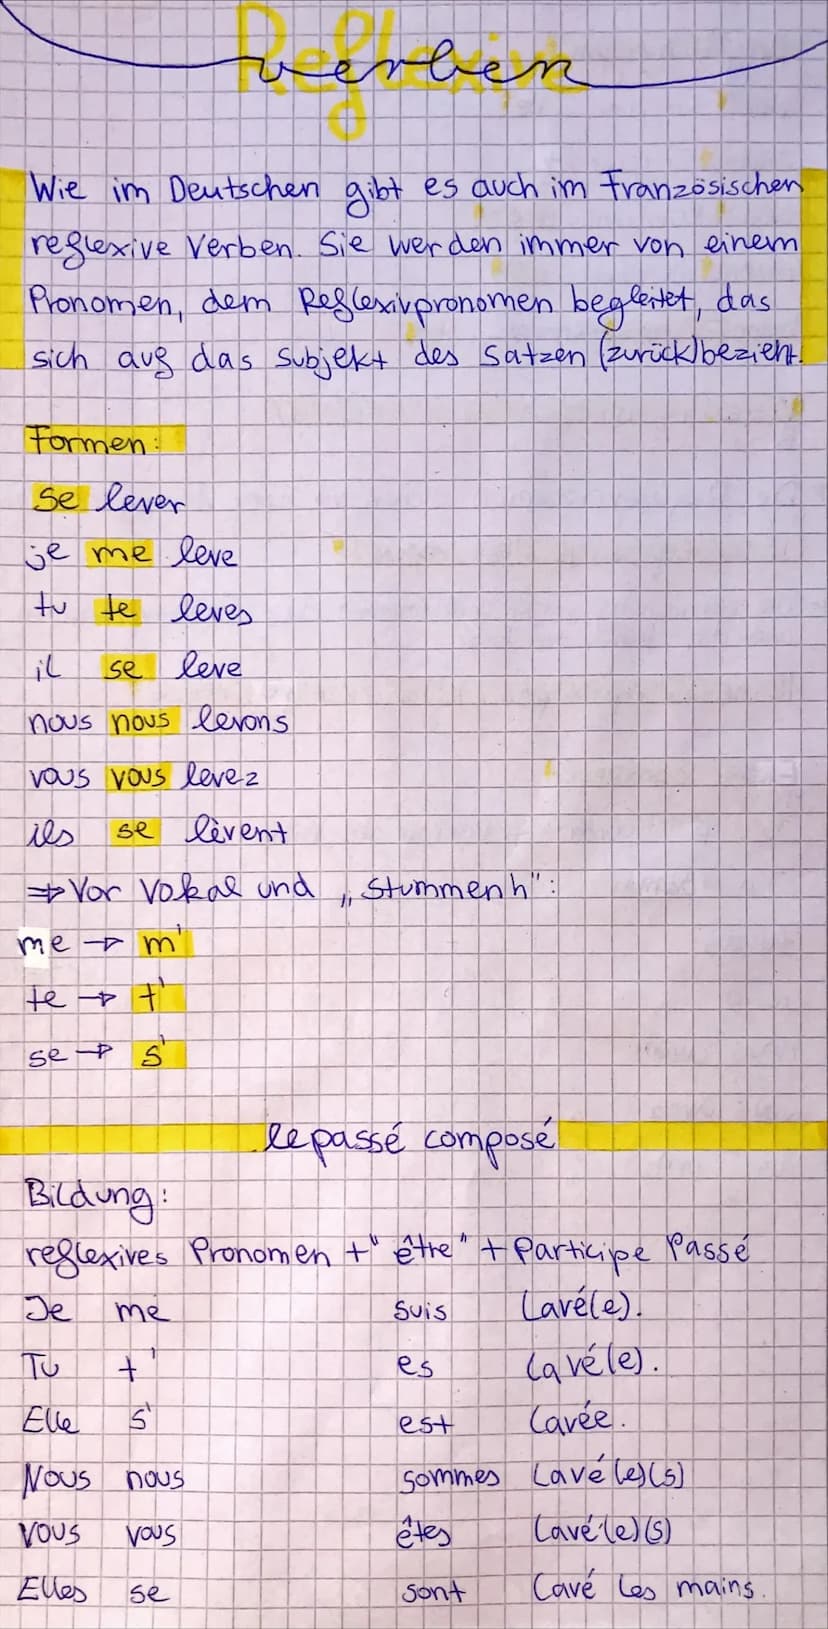 Reflexive
verben
Wie im Deutschen gibt es auch im Französischen
reflexive Verben. Sie werden immer von einem
Pronomen, dem Reflexivpronomen begleitet, das
sich auf das Subjekt des Satzen (zurück)bezieht.
Formen:
se lever
je me leve
tu te leves
il se leve
nous nous levons
vous vous levez
ils se lèvent
⇒ Vor Vokal und „Stummen h":
me → m'
te → t'
se → s'
le passé composé
Bildung:
reflexives Pronomen + "être" + Participe Passé
Je me suis lavé(e).
Tu t' es lavé(e).
Elle s' est lavée.
Nous nous sommes lavé(e)(s)
Vous vous êtes lavé(e)(s)
Elles se sont lavé les mains.